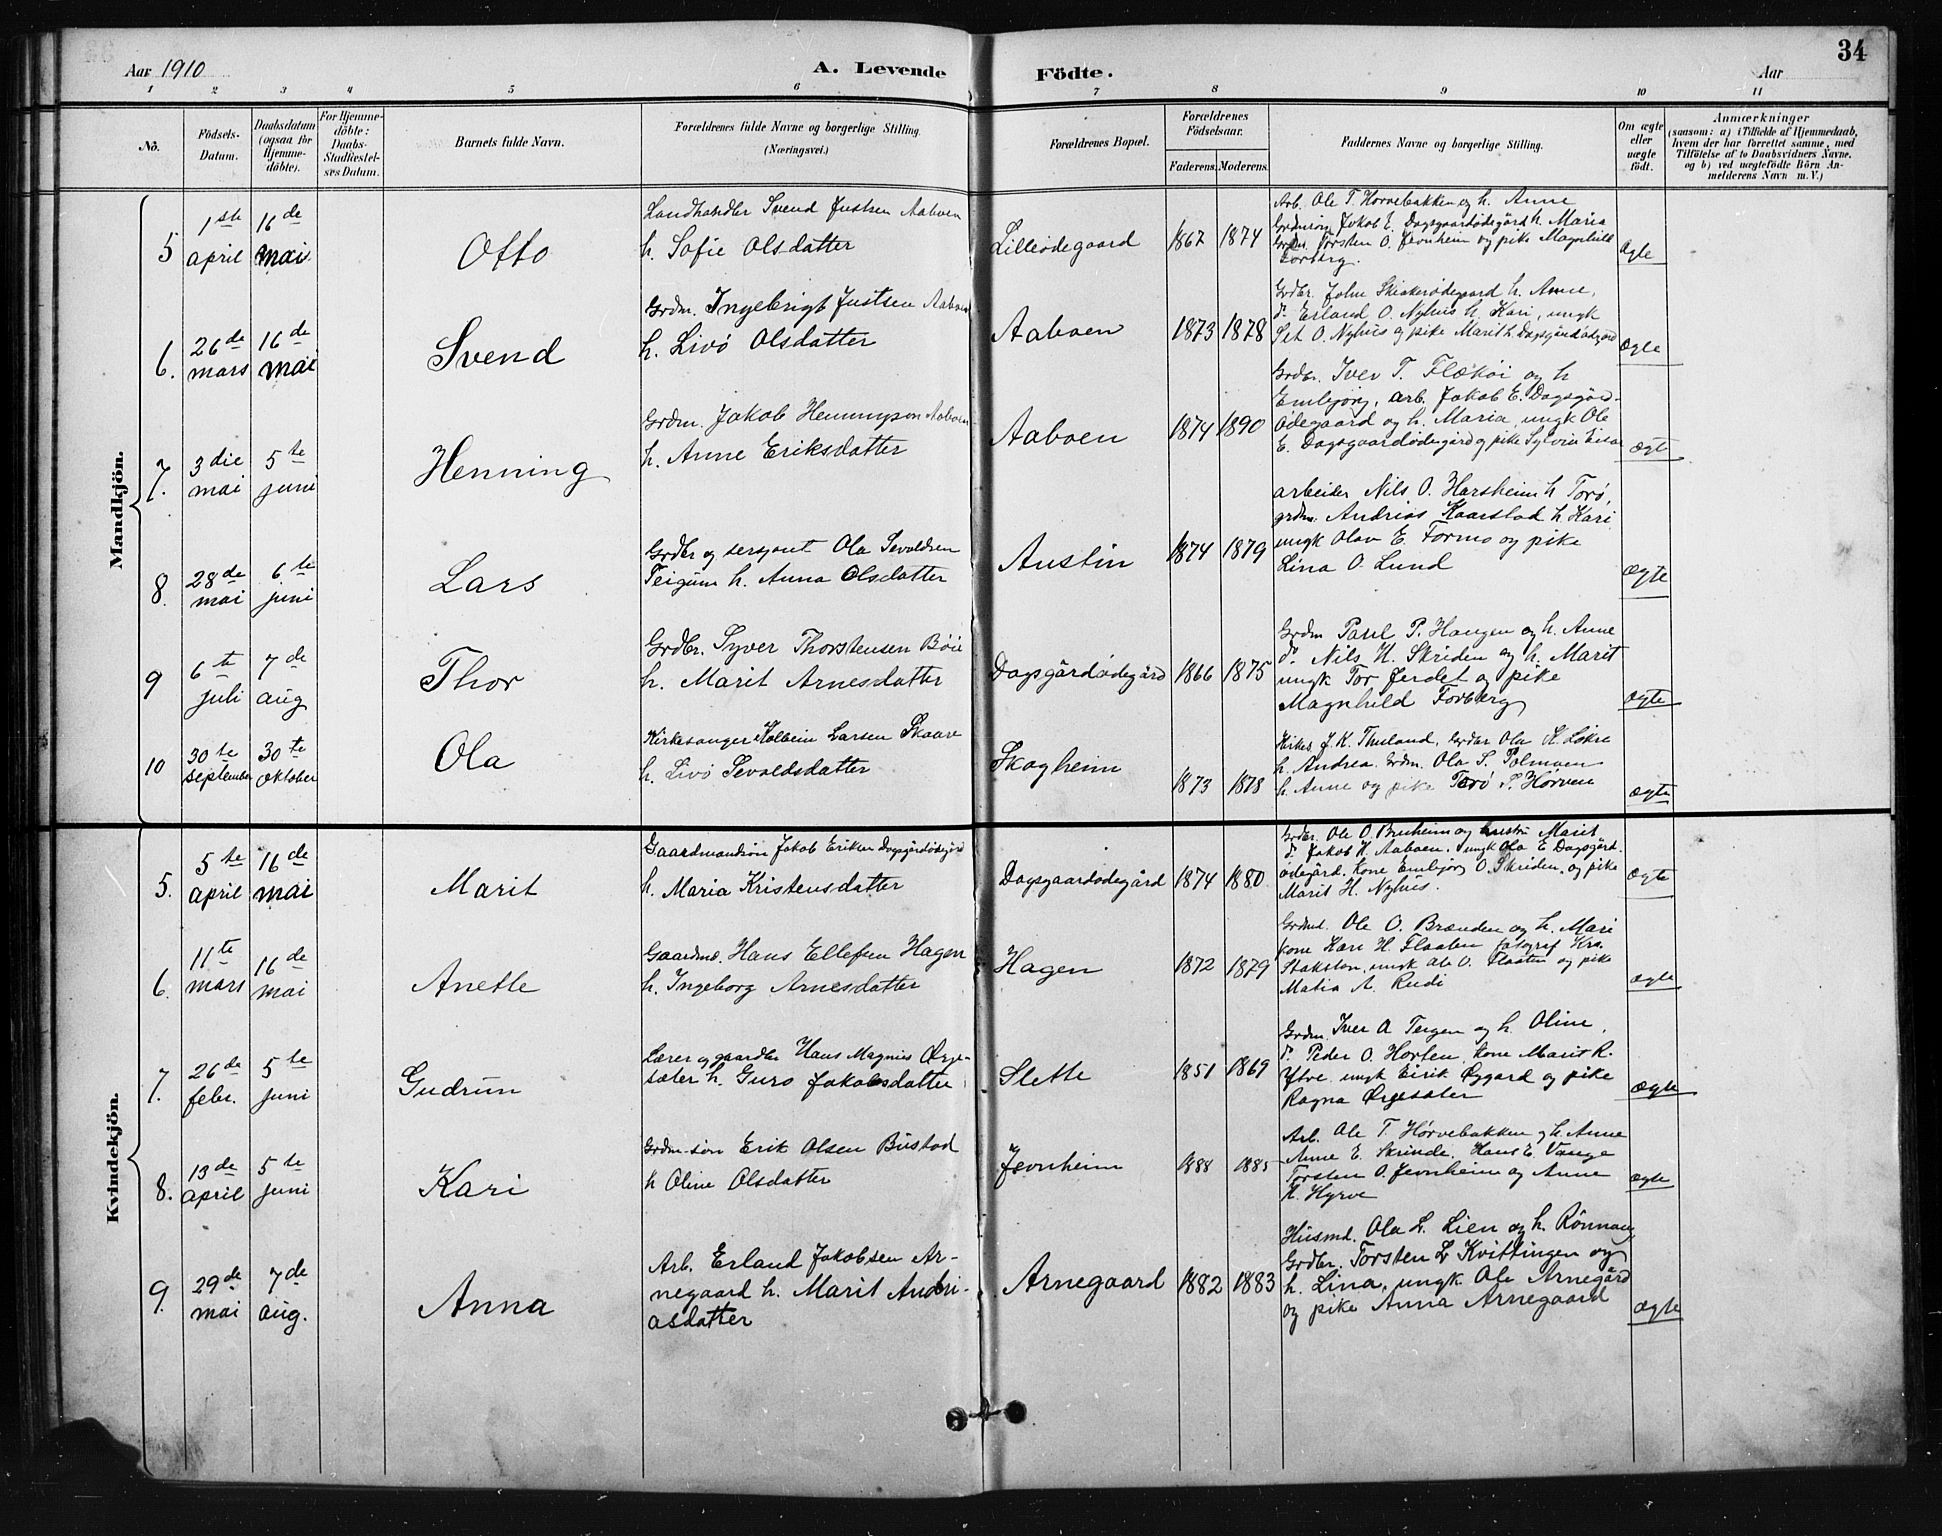 34
Aar 1910
A. Levende Födte.
Aar
1 2 3 4 5 6 7 8 9 10 11
No.
Födsels-Datum.
Daabsdatum (ogsaa for Hjemme-döbte).
For Hjemme-döbte: Daabs-Stadfæstel-ses Datum.
Barnets fulde Navn.
Forældrenes fulde Navne og borgerlige Stilling.
(Næringsvei.)
Forældrenes Bopæl.
Forældrenes Födselsaar.
Faderens. Moderens.
Faddernes Navne og borgerlige Stilling.
Om ægte eller uægte födt.
Anmærkninger
(saasom: a) i Tilfælde af Hjemmedaab, hvem der har forrettet samme, med Tilföielse af to Daabsvidners Navne, og b) ved uægtefödte Börn An-melderens Navn m. V.)
Mandkjön.
5
1ste april
16de mai
Otto
Landhandler Svend Justsen Aaboen
h. Sofie Olsdatter
Lilleødegaard
1867 1874
Arb. Ole T. Hørvebakken og h. Anne
Jakob E. Dagsgaardødegård h. Maria
Grdm. Torsten O. Jevnheim og pike Magnhild
Forberg.
ægte
6.
26de mars
16de mai
Svend
Grdm. Ingebrigt Justsen Aaboen
h. Livø Olsdatter
Aaboen
1873 1878
Grdbr. John Skiakerødegaard h. Anne,
do Erland O. Nyhus h. Kari, ungk
O. Nyhus og pike Marit h. Dagsgårdødegård
ægte
7.
3die mai
5te juni
Henning
Grdm. Jakob Henningsen Aaboen
h. Anne Eriksdatter
Aaboen
1874 1890
Grdbr. Iver T. Flækøi og h
Embjørg, arb. Jakob E. Dagsgård-
ødegaard og h. Maria, ungk Ole
E. Dagsgaardødegård og pike Sylvia
ægte
8.
28de mai
6te juni
Lars
Grdbr og sersjant Ola Sevaldsen
Teigum h. Anna Olsdatter
Austin
1874 1879
arbeider Nils O. Harsheim h. Torø,
grdm. Andrias Kaarstad h. Kari
ungk Olav E. Formo og pike
Lina O. Lund
ægte
9
6te juli
7de aug
Thor
Grdbr. Syver Thorstensen Bøie
h. Marit Arnesdatter
Dagsgårdødegård
1866 1875
Grdm Paul P. Haugen og h. Anne
do. Nils H. Skriden og h. Marit
ungk Tor Jerdet og pike
Magnhild Forberg
ægte
10
30te september
30te oktober
Ola
Kirkesanger Kolbein Larsen Skaare
h. Livø Sevaldsdatter
Skogheim
1873 1878
Kirkes. J. K. Thuland, Grdbr Ola K. Løkre
h. Andrea. Grdm. Ola S. Polmoen
h. Anne og pike Torø S. Hørven
ægte
Kvindekjön.
5.
5te april
16de mai
Marit
Gaardmandsøn Jakob Eriksen Dagsgårdødegård
h. Maria Kristensdatter
Dagsgaardødegård
1874 1880
Grdbr. Ole O. Bruheim og hustru Marit
do Jakob H. Aaboen. ungk Ola E Dagsgård-
ødegård. Kone Embjørg O. Skriden. og pike
Marit H. Nyhus.
ægte
6.
11te mars
16de mai
Anette
Gaardm. Hans Ellefsen Hagen
h. Ingeborg Arnesdatter
Hagen
1872 1879
Ole O. Brænden og h. Mari
kone Kari H. Flaaten fotograf Kra.
Stokstad, ungk Ole O. Flaaten og pike
Matia A. Rudi
ægte
7.
26de febr.
5te juni
Gudrun
Lærer og gaardbr Hans Magnus Ørje-
sæter h. Guro Jakobsdatter
Slette
1851 1869
Grdm. Iver A Teigen og h. Oline.
do. Peder O. Horten, kone Marit R.
Ytre ungk Eirik Øygard og pike
Ragna Ørjesæter
ægte
8.
13de april
5te juni
Kari
Grdm-søn Erik Olsen Bustad
h Oline Olsdatter
Jevnheim
1888 1885
Arb. Ole T. Hørvebakken og h. Anne
Anne E. Skrinde. Hans E. Vange
Torsten O. Jevnheim og Anne
K. Hyrve
ægte
9.
29de mai
7de aug.
Anna
Arb. Erland Jakobsen Ar-
negaard h. Marit Andri-
asdatter
Arnegaard
1882 1883
Husmd. Ola L. Lien og h. Rønnaug
Grdbr. Torsten L Kvittingen og
h. Lina, ungk. Ole Arnegård
og pike Anna Arnegaard
ægte